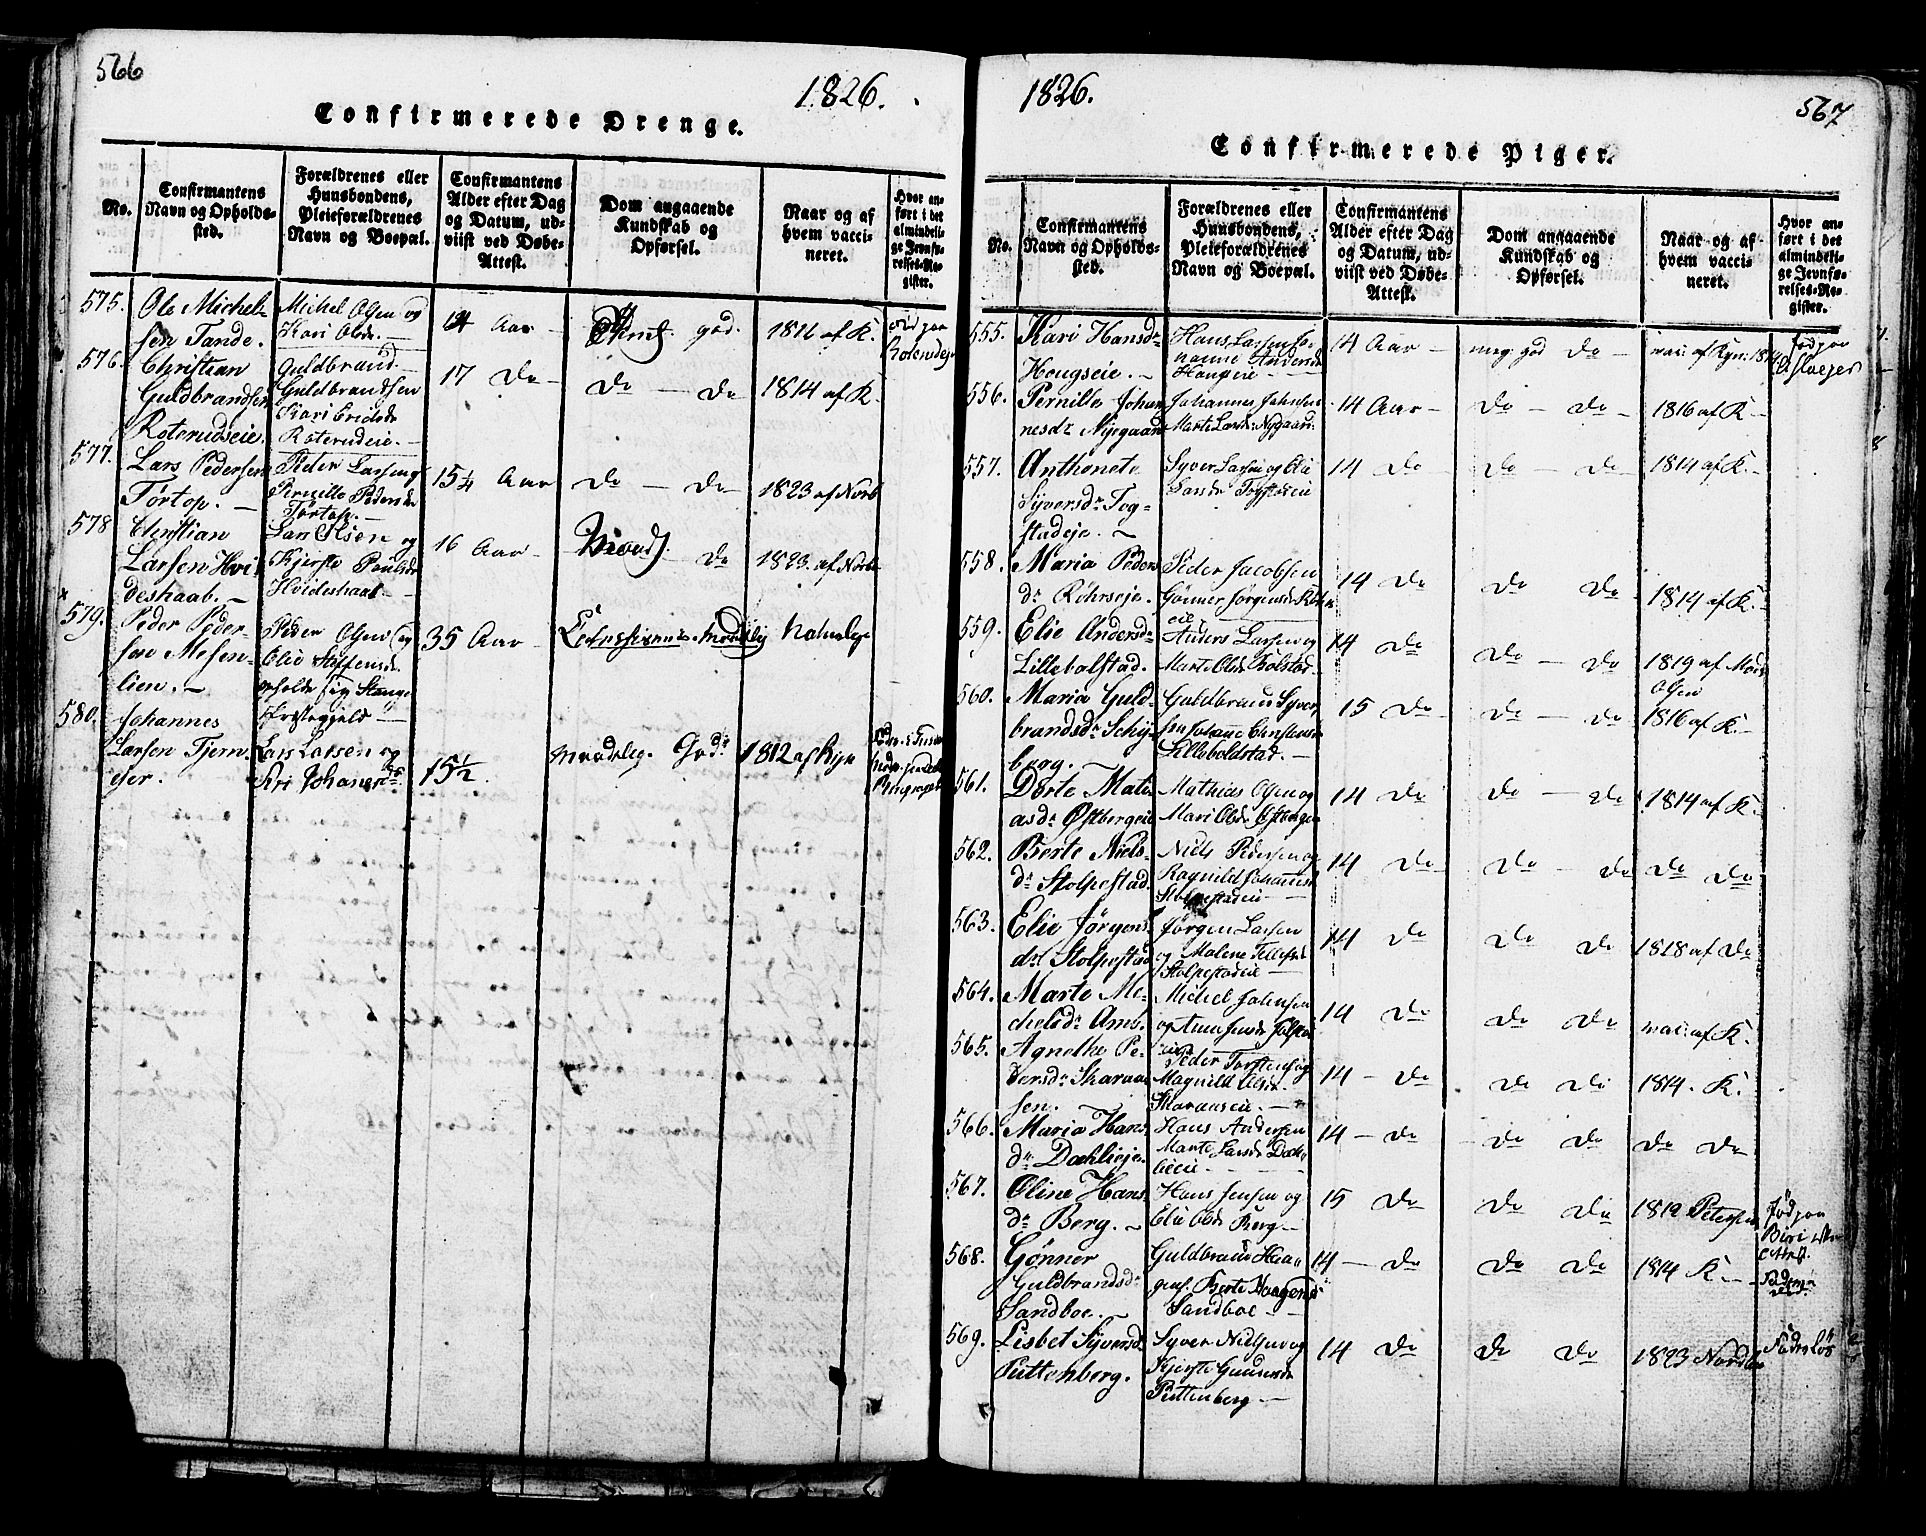 566
1826.
Confirmerede Drenge.
No.
Confirmantens
Navn og Opholds-
sted.
Forældrenes eller
Huusbondens,
Pleieforældrenes
Navn og Boepæl.
Confirmantens
Alder efter Dag
og Datum, ud-
viist ved Døbe-
Attest.
Dom angaaende
Kundskab og
Opførsel.
Naar og af
hvem vacci-
neret.
Hvor an-
ført i det
almindeli-
ge Jevnfø-
relses-Re-
gister.
575.
Ole Michel-
sen Tande.
Michel Olsen og
Kari Olsdr.
14 Aar
god.
1816 af K.
576.
Christian
Guldbrandsen
Roterudseie.
Guldbrand
Guldbrandsen
Roterudeie.
17 Do
Do Do
1814 af K.
577.
Lars Pedersen
Tørtop.
Peder Larsen og
Pernille Pedersdr
Tørtop.
15¼ Aar
Do Do
1823 af Norb
578
Christian
Larsen Hvi-
deshaab.
Lars Olsen og
Kjerste Paulsdr
Hvideshaab
16 Aar
Do
1823 af Norb
579.
Peder Peder-
sen Mesen-
lien.
Peder Olsen og
Elie Steffensdr
opholde sig Stange
Præstegjeld
35 Aar
Maadelig
Naturlige
580.
Johannes
Larsen Tjern-
ejer.
Lars Larsen og
Kri Johanesdr
15½.
maadelig. God
1812 af Kyn
1826.
567
Confirmerede Piger.
No.
Confirmantens
Navn og Opholds-
sted.
Forældrenes eller
Huusbondens,
Pleieforældrenes
Navn og Boepæl.
Confirmantens
Alder efter Dag
og Datum, ud-
viist ved Døbe-
Attest.
Dom angaaende
Kundskab og
Opførsel.
Naar og af
hvem vacci-
neret.
Hvor an-
ført i det
almindeli-
ge Jevnfø-
relses-Re-
gister.
555.
Kari Hansdr
Hougseie.
Hans Larsen
Hougseie
14 Aar
meg: god Do
vaci: af Kyn: 1814
født paa
556.
Pernille Johan-
nesdr Nijegaard
Johannes Johnsen
Marte Larsdr Nygaard.
14 Aar
Do Do
1816 af K
557.
Anthonete
Syversdr Tog-
stadeje.
Syver Larsen og Elie
Larsdr Togstadeie
14 Do
Do Do
1814 af K.
558.
Maria Peders-
dr Röhrseje.
Peder Jacobsen
Gönner Jörgensdr
eie.
14 Do
Do Do
1814 af K.
559.
Elie Andersdr
Lillebolstad.
Anders Larsen og
Marte Olsdr Bolstad
14 Do
Do Do
1819 af
Olsen
560.
Maria Guld-
brandsdr Schy-
berg.
Guldbrand Syver-
sen Johanne Christensdr
Lilleboldstad.
15 Do
Do Do
1816 af K.
561.
Dorte Mati-
asdr Østbergeie
Mathias Olsen og
Mari Olsdr Østbergei
14 Do
Do Do
1814 af K.
562.
Berte Niels-
dr Stolpestad.
Niels Pedersen og
Ragnild Johannesdr
Stolpestadeie
14 Do
Do Do
Do Do
563.
Elie Jørgens-
dr Stolpestad
Jørgen Larsen
og Malene Tellefsdr
Stolpestadeie
14 Do
Do Do
1818 af Do
564.
Marte Mi-
chelsdr Ams.
Michel Johnsen
14 Do
Do Do
vaci: af K.
565.
Agnethe Pe-
dersdr Skaraa-
sen.
Peder Torstens og
Magnild Olsdr
Skaraaseie.
14 Do
Do Do
1814. K.
566.
Maria Hans-
dr Dæhlieje.
Hans Andersen
Marte Larsdr Dæh-
lieeie
14 Do
Do Do
Do Do
567.
Oline Hans-
dr Berg.
Hans Jensen og
Elie Olsdr Berg
15 Do
Do Do
1812 Petersen
Født paa
Biri
568.
Gönner
Guldbrandsdr
Sandboe.
Guldbrand Haa-
gens. Berte Haagensdr
Sandboe
14 Do
Do Do
1814 K.
569.
Lisbet Syversdr
Puttenberg.
Syver Nielsen og
Kjerste Gundersdr
Puttenberg
14 Do
Do Do
1823
Faderløs